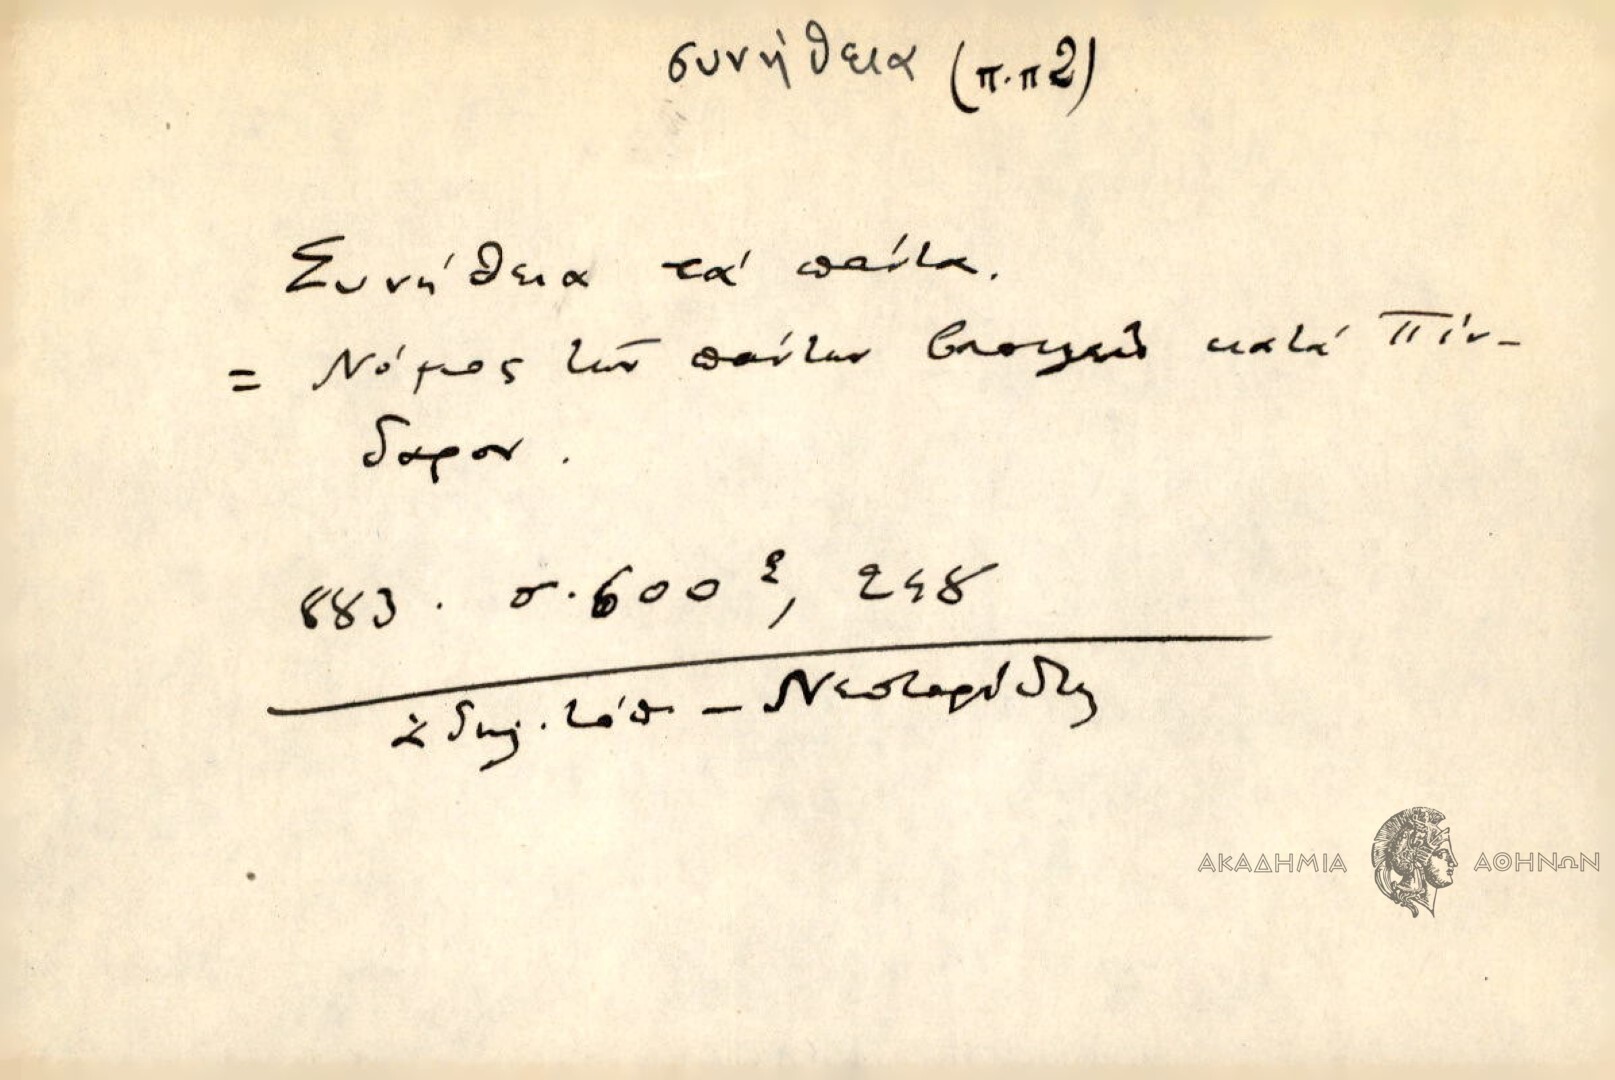 συνήθεια (π.π2)
Συνήθεια τά πάντα.
= Νόμος τῶν πάντων βασιλεύς κατά Πίν-
δαρον.
883. σ. 600², 248
δηλ. τόπ - Νεσταρίδης
ΑΚΑΔΗΜΙΑ ΑΘΗΝΩΝ